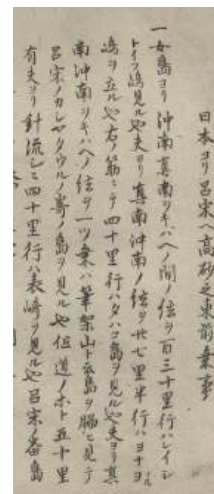 日本ヨリ呂宋ヘ高砂之東前乗事
一女島ヨリ沖南真南ヲキハヘノ間ノ弦ヲ百三十里行ハイシ
トイフ嶋見ルヤ夫ヨリ真南沖南ノ弦ヲ廿七里半行ハヨナコ
嶋ヲ立ルヤ右ノ筋ニテ四十里行ハタハコ島ヲ見ルヤ夫ヨリ真
南沖南ヲキハヘノ弦ヲ一ツ乗ハ筆架山ト云島ヲ脇ヒ見テ
呂宋ノカシヤタウルノ寄ノ島ヲ見ルヤ但道ノホト五十里
有夫ヨリ針流シニ四十里行ハ表崎ヲ見ルヤ呂宋ノ番島